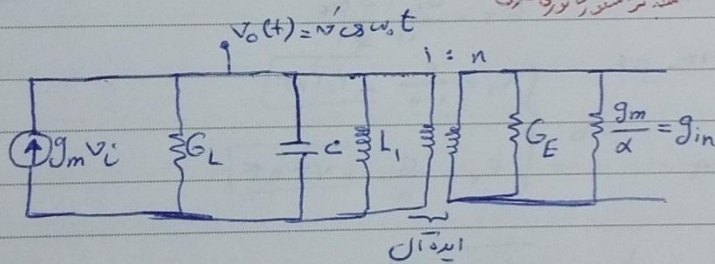 V₀(t) = v′ cos ω₀t
1 : n
gₘvᵢ
G_L
C
L₁
G_E
gₘ/α = gᵢₙ
ایده‌آل